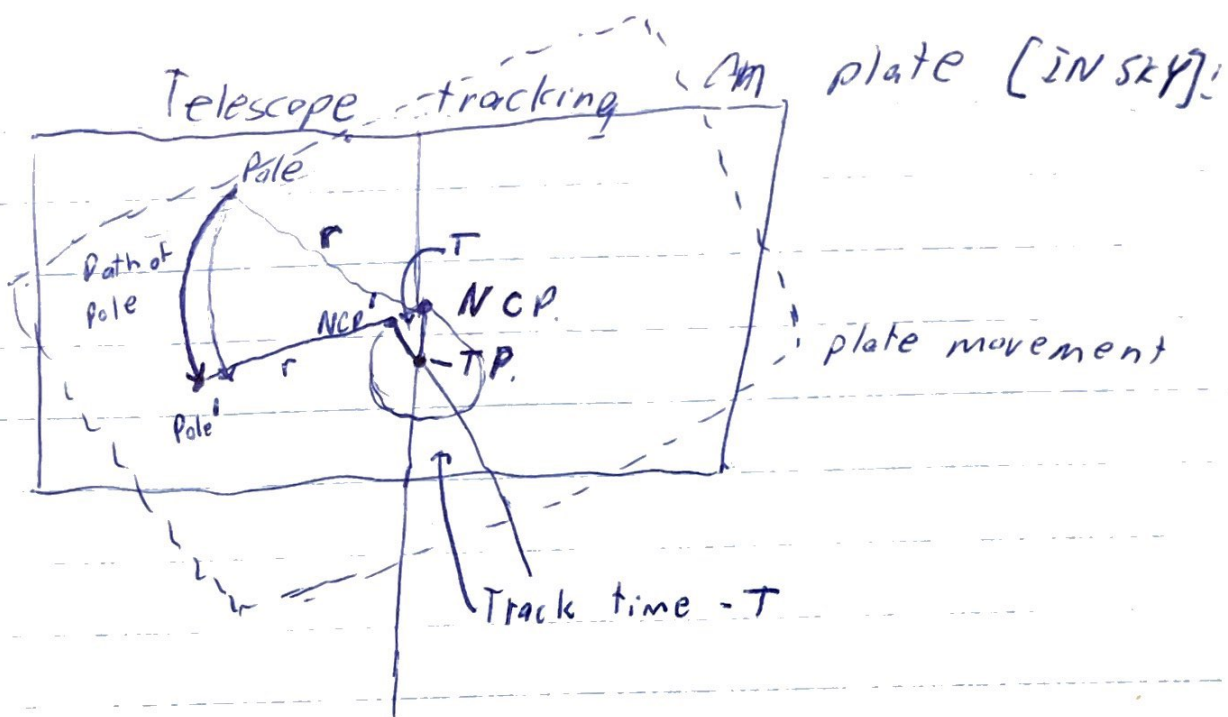 Telescope tracking on plate [IN SKY]:
Pole
r
T
Path of
Pole
NCP'
NCP.
TP.
r
plate movement
Pole'
Track time - T